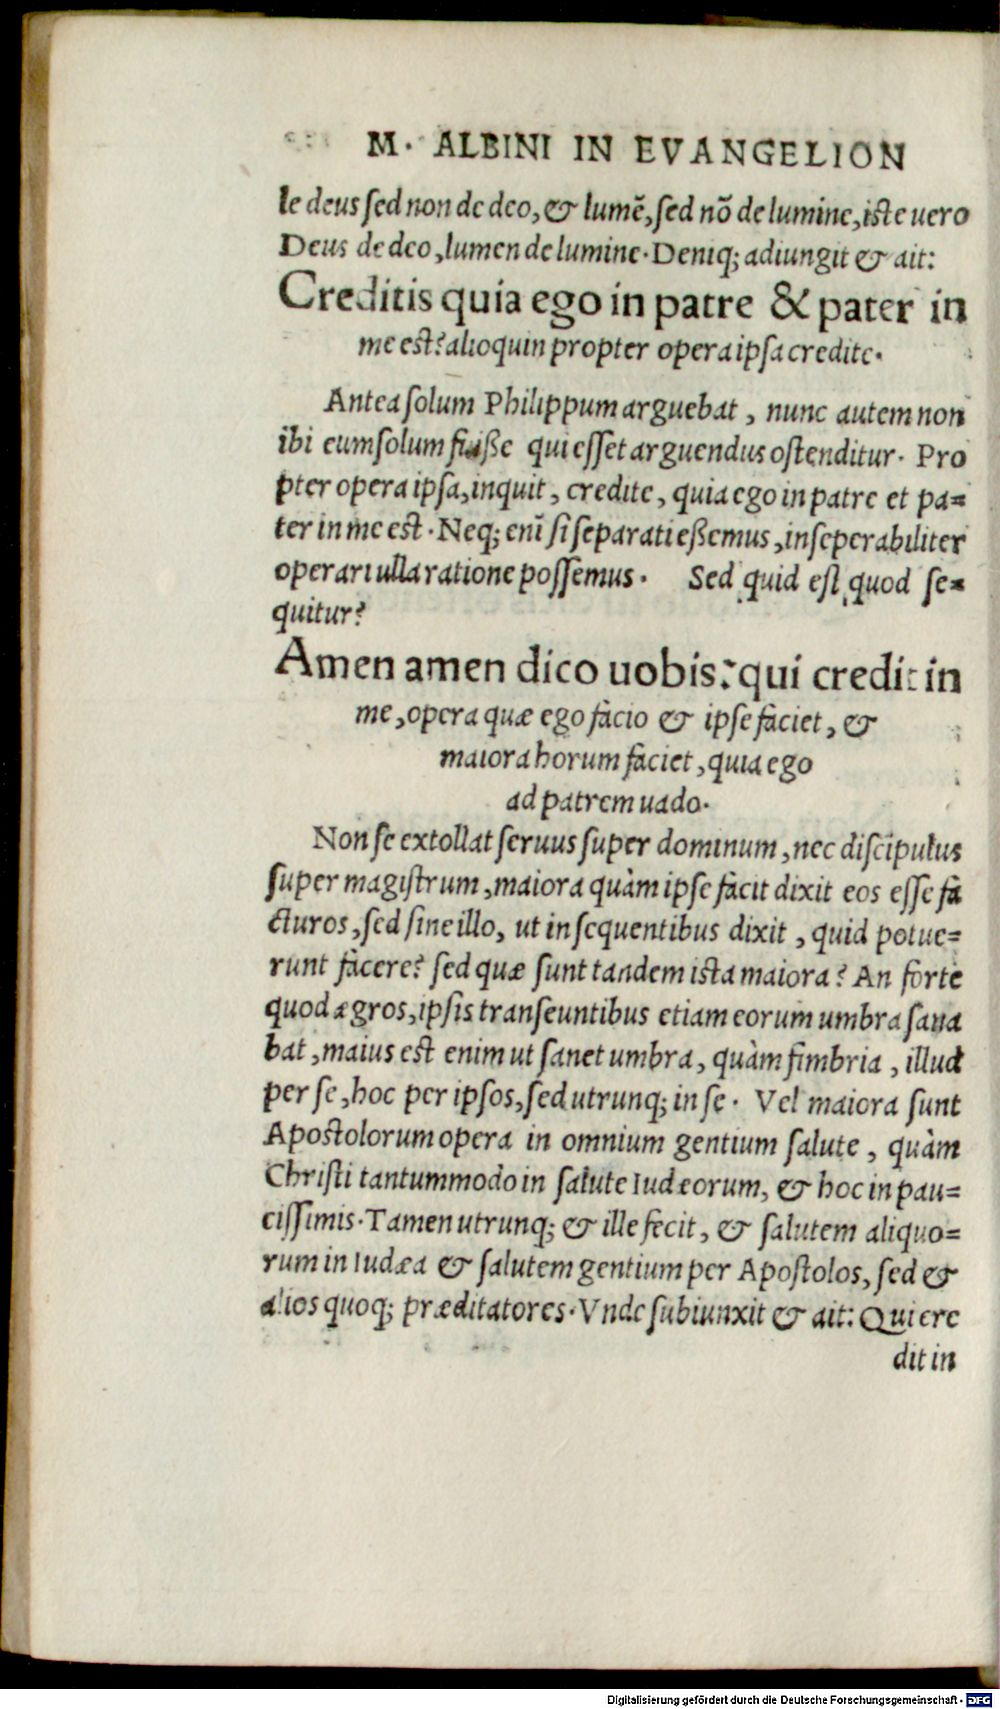 M. ALBINI IN EVANGELION
le deus sed non de deo, & lumē, sed nō de lumine, iste uero
Deus de deo, lumen de lumine. Deniq; adiungit & ait:
Creditis quia ego in patre & pater in
me est? alioquin propter opera ipsa credite.
Antea solum Philippum arguebat, nunc autem non
ibi eum solum fuisse qui esset arguendus ostenditur. Pro
pter opera ipsa, inquit, credite, quia ego in patre et pa=
ter in me est. Neq; enī si separati essemus, inseperabiliter
operari ulla ratione possemus. Sed quid est quod se=
quitur?
Amen amen dico uobis: qui credit in
me, opera quæ ego facio & ipse faciet, &
maiora horum faciet, quia ego
ad patrem uado.
Non se extollat seruus super dominum, nec discipulus
super magistrum, maiora quàm ipse facit dixit eos esse fa
cturos, sed sine illo, ut in sequentibus dixit, quid potue=
runt facere? sed quæ sunt tandem ista maiora? An forte
quod ægros, ipsis transeuntibus etiam eorum umbra sana
bat, maius est enim ut sanet umbra, quàm fimbria, illud
per se, hoc per ipsos, sed utrunq; in se. Vel maiora sunt
Apostolorum opera in omnium gentium salute, quàm
Christi tantummodo in salute Iudæorum, & hoc in pau=
cissimis. Tamen utrunq; & ille fecit, & salutem aliquo=
rum in Iudæa & salutem gentium per Apostolos, sed &
alios quoq; præditatores. Vnde subiunxit & ait: Qui cre
dit in
Digitalisierung gefördert durch die Deutsche Forschungsgemeinschaft - DFG